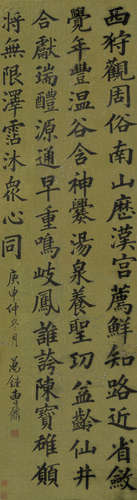 西狩觀周俗南山歷漢宮薦鮮知路近省斂
覺年豐温谷含神爨湯泉養聖功益齡仙井
合獻瑞醴源通早重鳴岐鳳誰誇陳寶雄願
將無限澤霑沐眾心同
庚申仲冬月